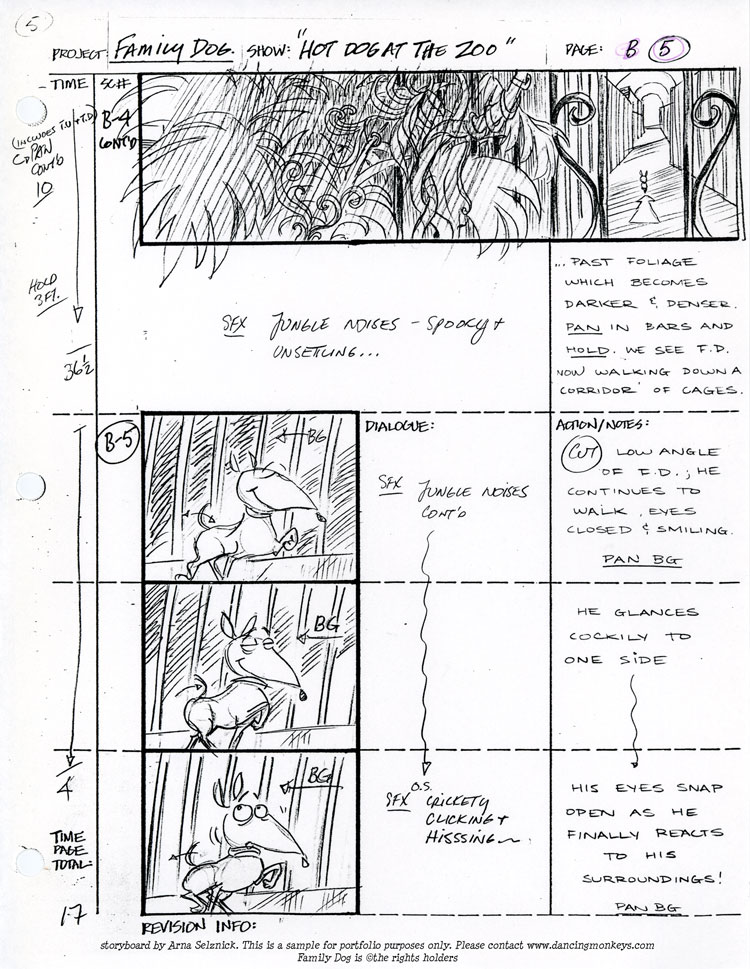 5
PROJECT: FAMILY DOG. SHOW: "HOT DOG AT THE ZOO" PAGE: B 5
TIME SC#
B-4
CONT'D
(INCLUDES T.U. + T.D)
PAN
CONT'D
10
HOLD
3 Ft.
36 1/2
SFX JUNGLE NOISES - SPOOKY +
UNSETLING...
...PAST FOLIAGE
WHICH BECOMES
DARKER & DENSER.
PAN IN BARS AND
HOLD. WE SEE F.D.
NOW WALKING DOWN A
'CORRIDOR' OF CAGES.
B-5
BG
DIALOGUE:
SFX JUNGLE NOISES
CONT'D
ACTION/NOTES:
CUT LOW ANGLE
OF F.D.; HE
CONTINUES TO
WALK, EYES
CLOSED & SMILING.
PAN BG
BG
HE GLANCES
COCKILY TO
ONE SIDE
4
BG
SFX O.S. CRICKETY
CLICKING +
HISSSING
HIS EYES SNAP
OPEN AS HE
FINALLY REACTS
TO HIS
SURROUNDINGS!
PAN BG
TIME
PAGE
TOTAL:
17
REVISION INFO:
storyboard by Arna Selznick. This is a sample for portfolio purposes only. Please contact www.dancingmonkeys.com
Family Dog is ©the rights holders